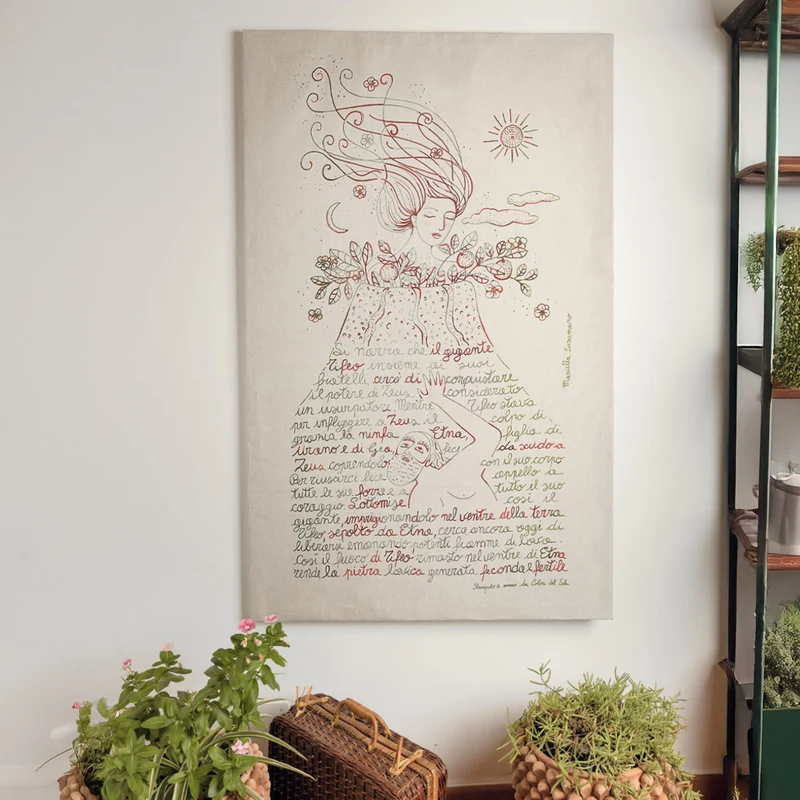 Si narra che il gigante
Tifeo insieme ai suoi
fratelli cercò di conquistare
il potere di Zeus considerato
un usurpatore. Mentre Tifeo stava
per infliggere a Zeus il colpo di
grazia la ninfa Etna, figlia di
Urano e di Gea fece da scudo a
Zeus coprendolo con il suo corpo
Per riuscirci fece appello a
tutte le sue forze e a tutto il suo
coraggio. Sottomise così il
gigante imprigionandolo nel ventre della terra
Tifeo, sepolto da Etna, cerca ancora oggi di
liberarsi emanando potenti fiamme di lava.
Così il fuoco di Tifeo rimasto nel ventre di Etna
rende la pietra lavica generata feconda e fertile
Stampato a mano da Colori del Sole